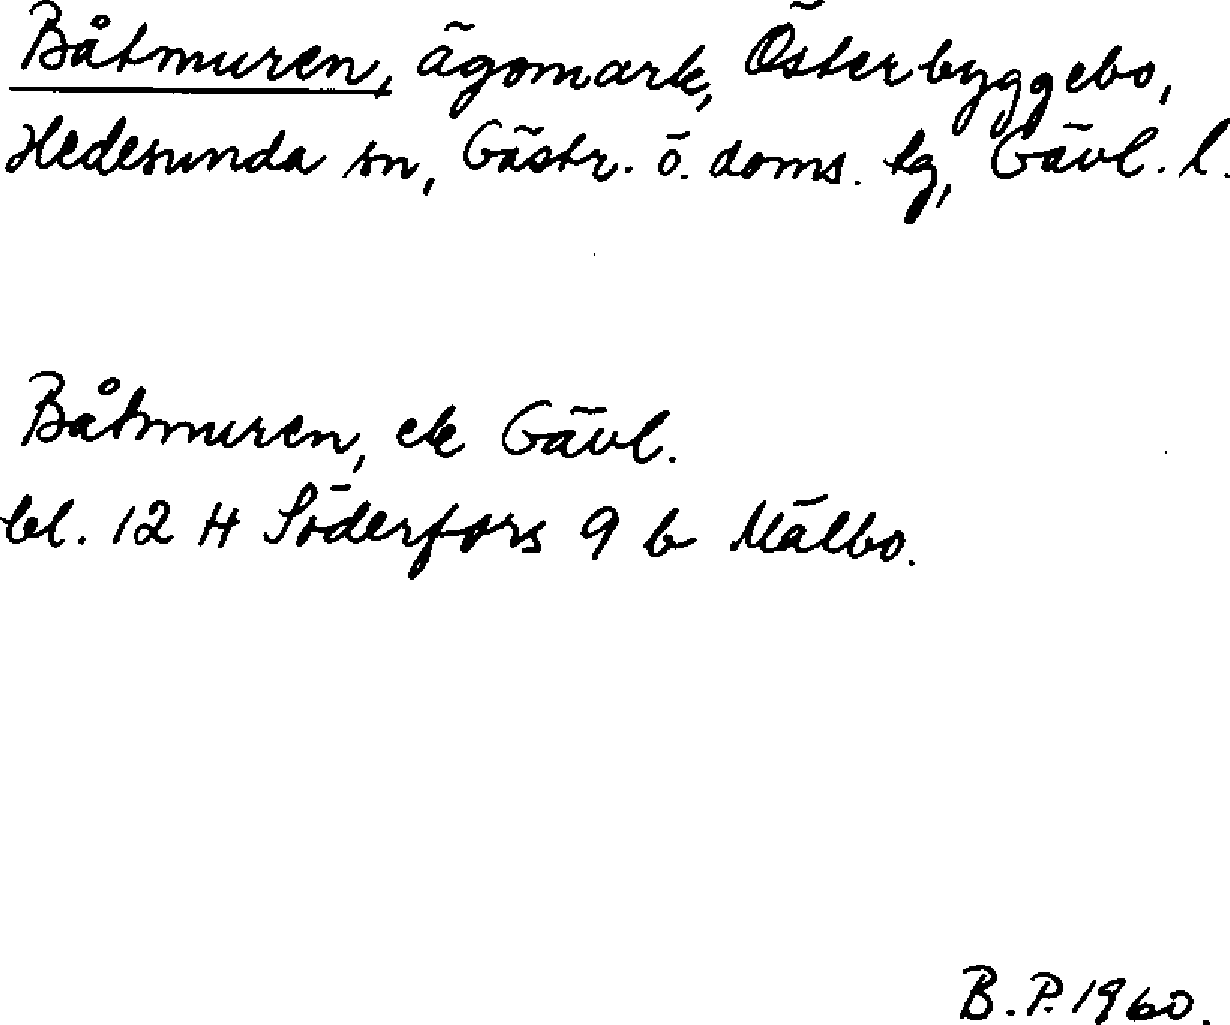 Båtmuren, ägomark, Österbyggebo,
Hedesunda sn, Gästr. ö. doms. lg, Gävl. l.
Båtmuren, ek Gävl.
bl. 12 H Söderfors 9 b Mälbo.
B. P. 1960.